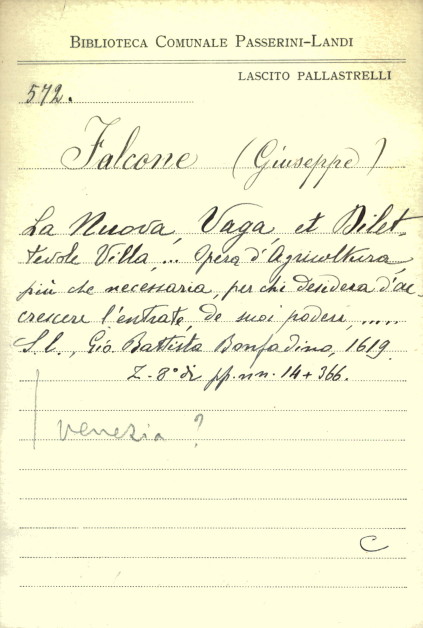 BIBLIOTECA COMUNALE PASSERINI-LANDI
LASCITO PALLASTRELLI
572.
Falcone (Giuseppe)
La Nuova, Vaga, et Dilet-
tevole Villa, ... Opera d'Agricoltura
più che necessaria, per chi desidera d'ac-
crescere l'entrate de suoi poderi, .....
S. l., Gio. Battista Bonfadino, 1619.
Z. - 8° di pp. nn. 14 + 366.
Venezia ?
C